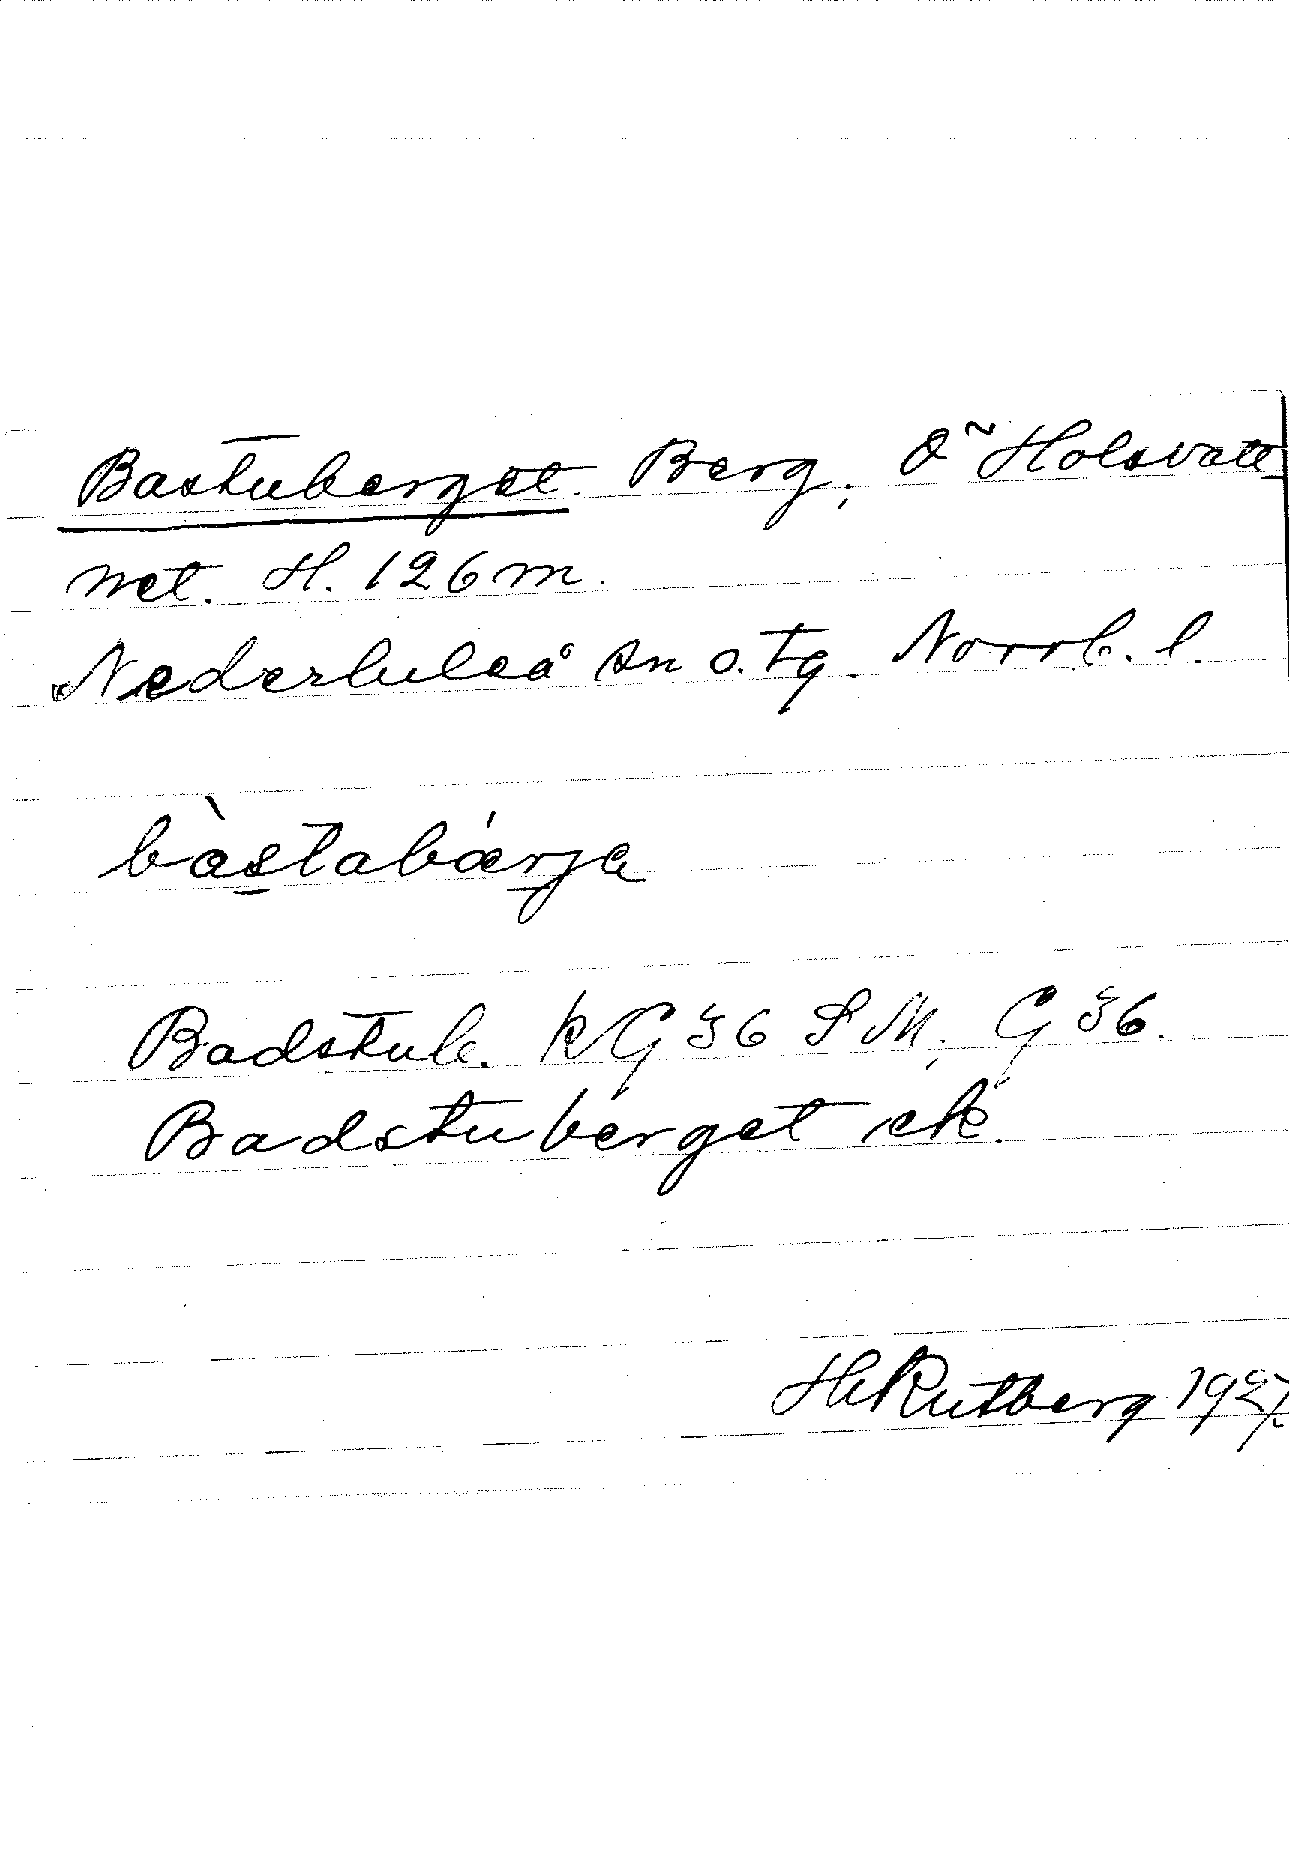 Bastuberget. Berg, O~ Holsvatt
net. H. 126 m.
Nederluleå sn o. tg. Norrb. l.
bàstabárja
Badstub. KG 36 S M, G 36.
Badstuberget ek.
H Rutberg 1927.